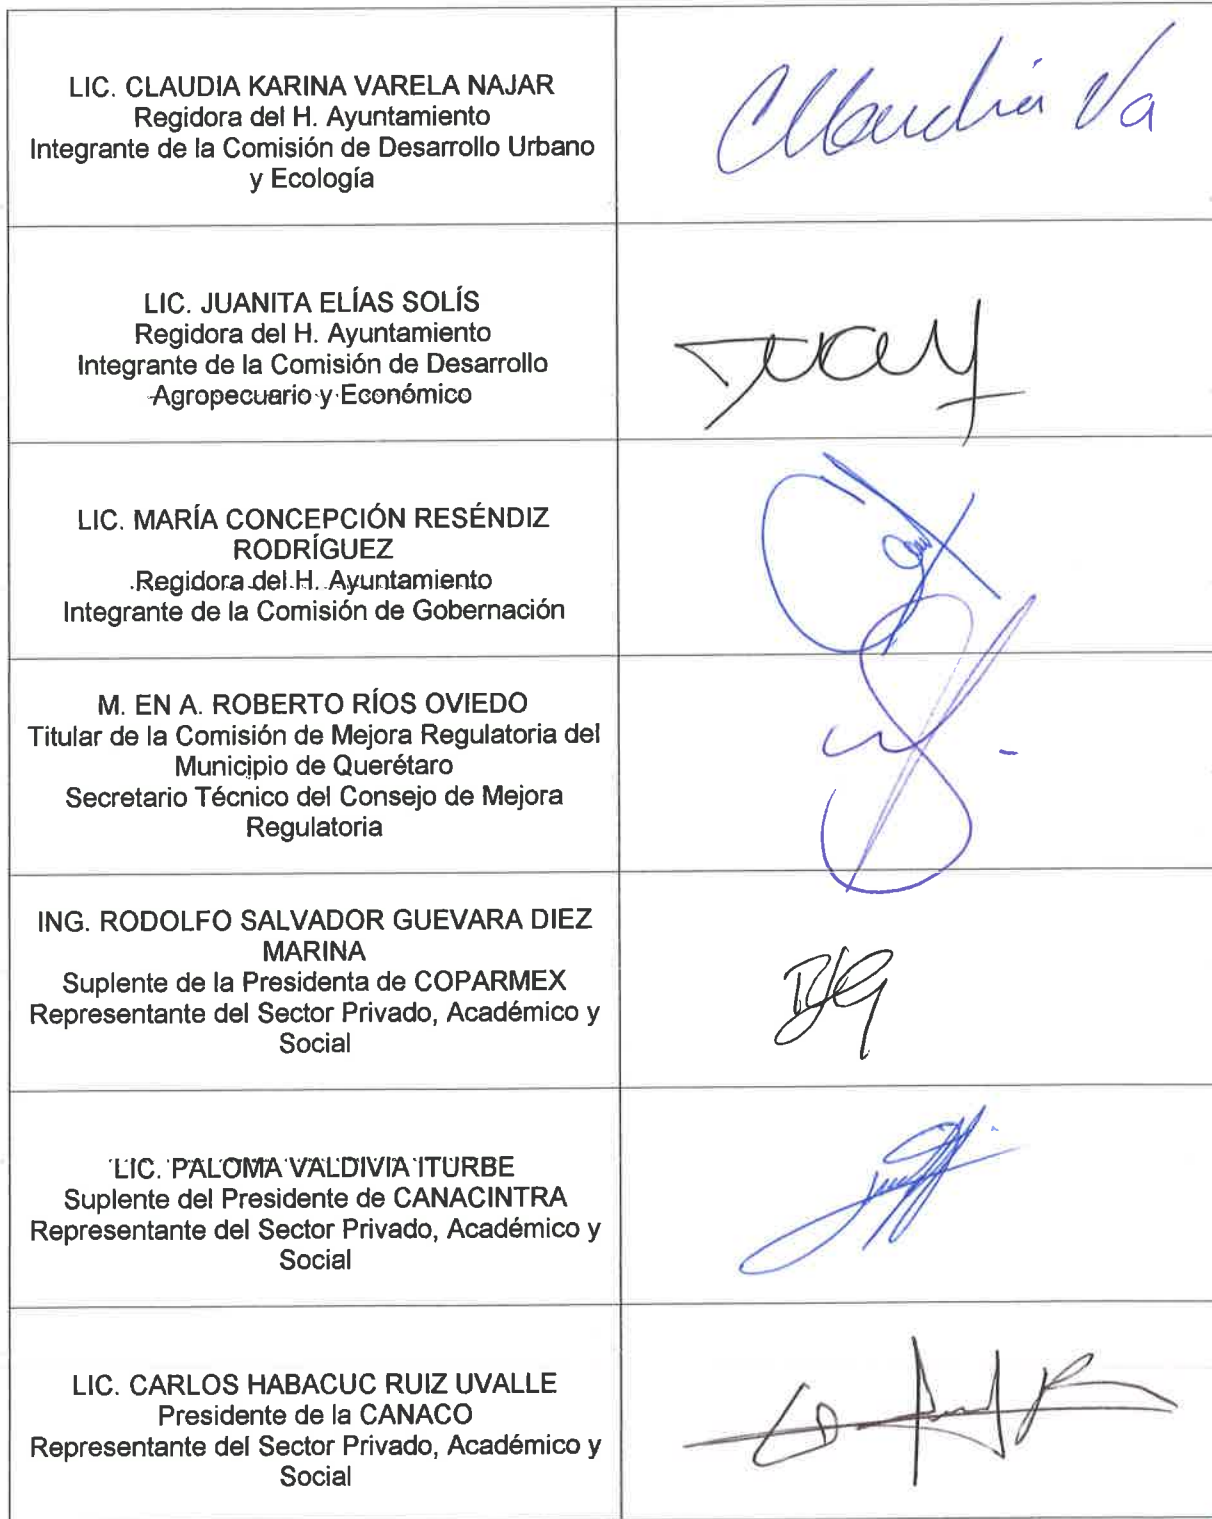 LIC. CLAUDIA KARINA VARELA NAJAR
Regidora del H. Ayuntamiento
Integrante de la Comisión de Desarrollo Urbano
y Ecología
Claudia Va
LIC. JUANITA ELÍAS SOLÍS
Regidora del H. Ayuntamiento
Integrante de la Comisión de Desarrollo
Agropecuario y Económico
LIC. MARÍA CONCEPCIÓN RESÉNDIZ
RODRÍGUEZ
Regidora del H. Ayuntamiento
Integrante de la Comisión de Gobernación
M. EN A. ROBERTO RÍOS OVIEDO
Titular de la Comisión de Mejora Regulatoria del
Municipio de Querétaro
Secretario Técnico del Consejo de Mejora
Regulatoria
ING. RODOLFO SALVADOR GUEVARA DIEZ
MARINA
Suplente de la Presidenta de COPARMEX
Representante del Sector Privado, Académico y
Social
LIC. PALOMA VALDIVIA ITURBE
Suplente del Presidente de CANACINTRA
Representante del Sector Privado, Académico y
Social
LIC. CARLOS HABACUC RUIZ UVALLE
Presidente de la CANACO
Representante del Sector Privado, Académico y
Social